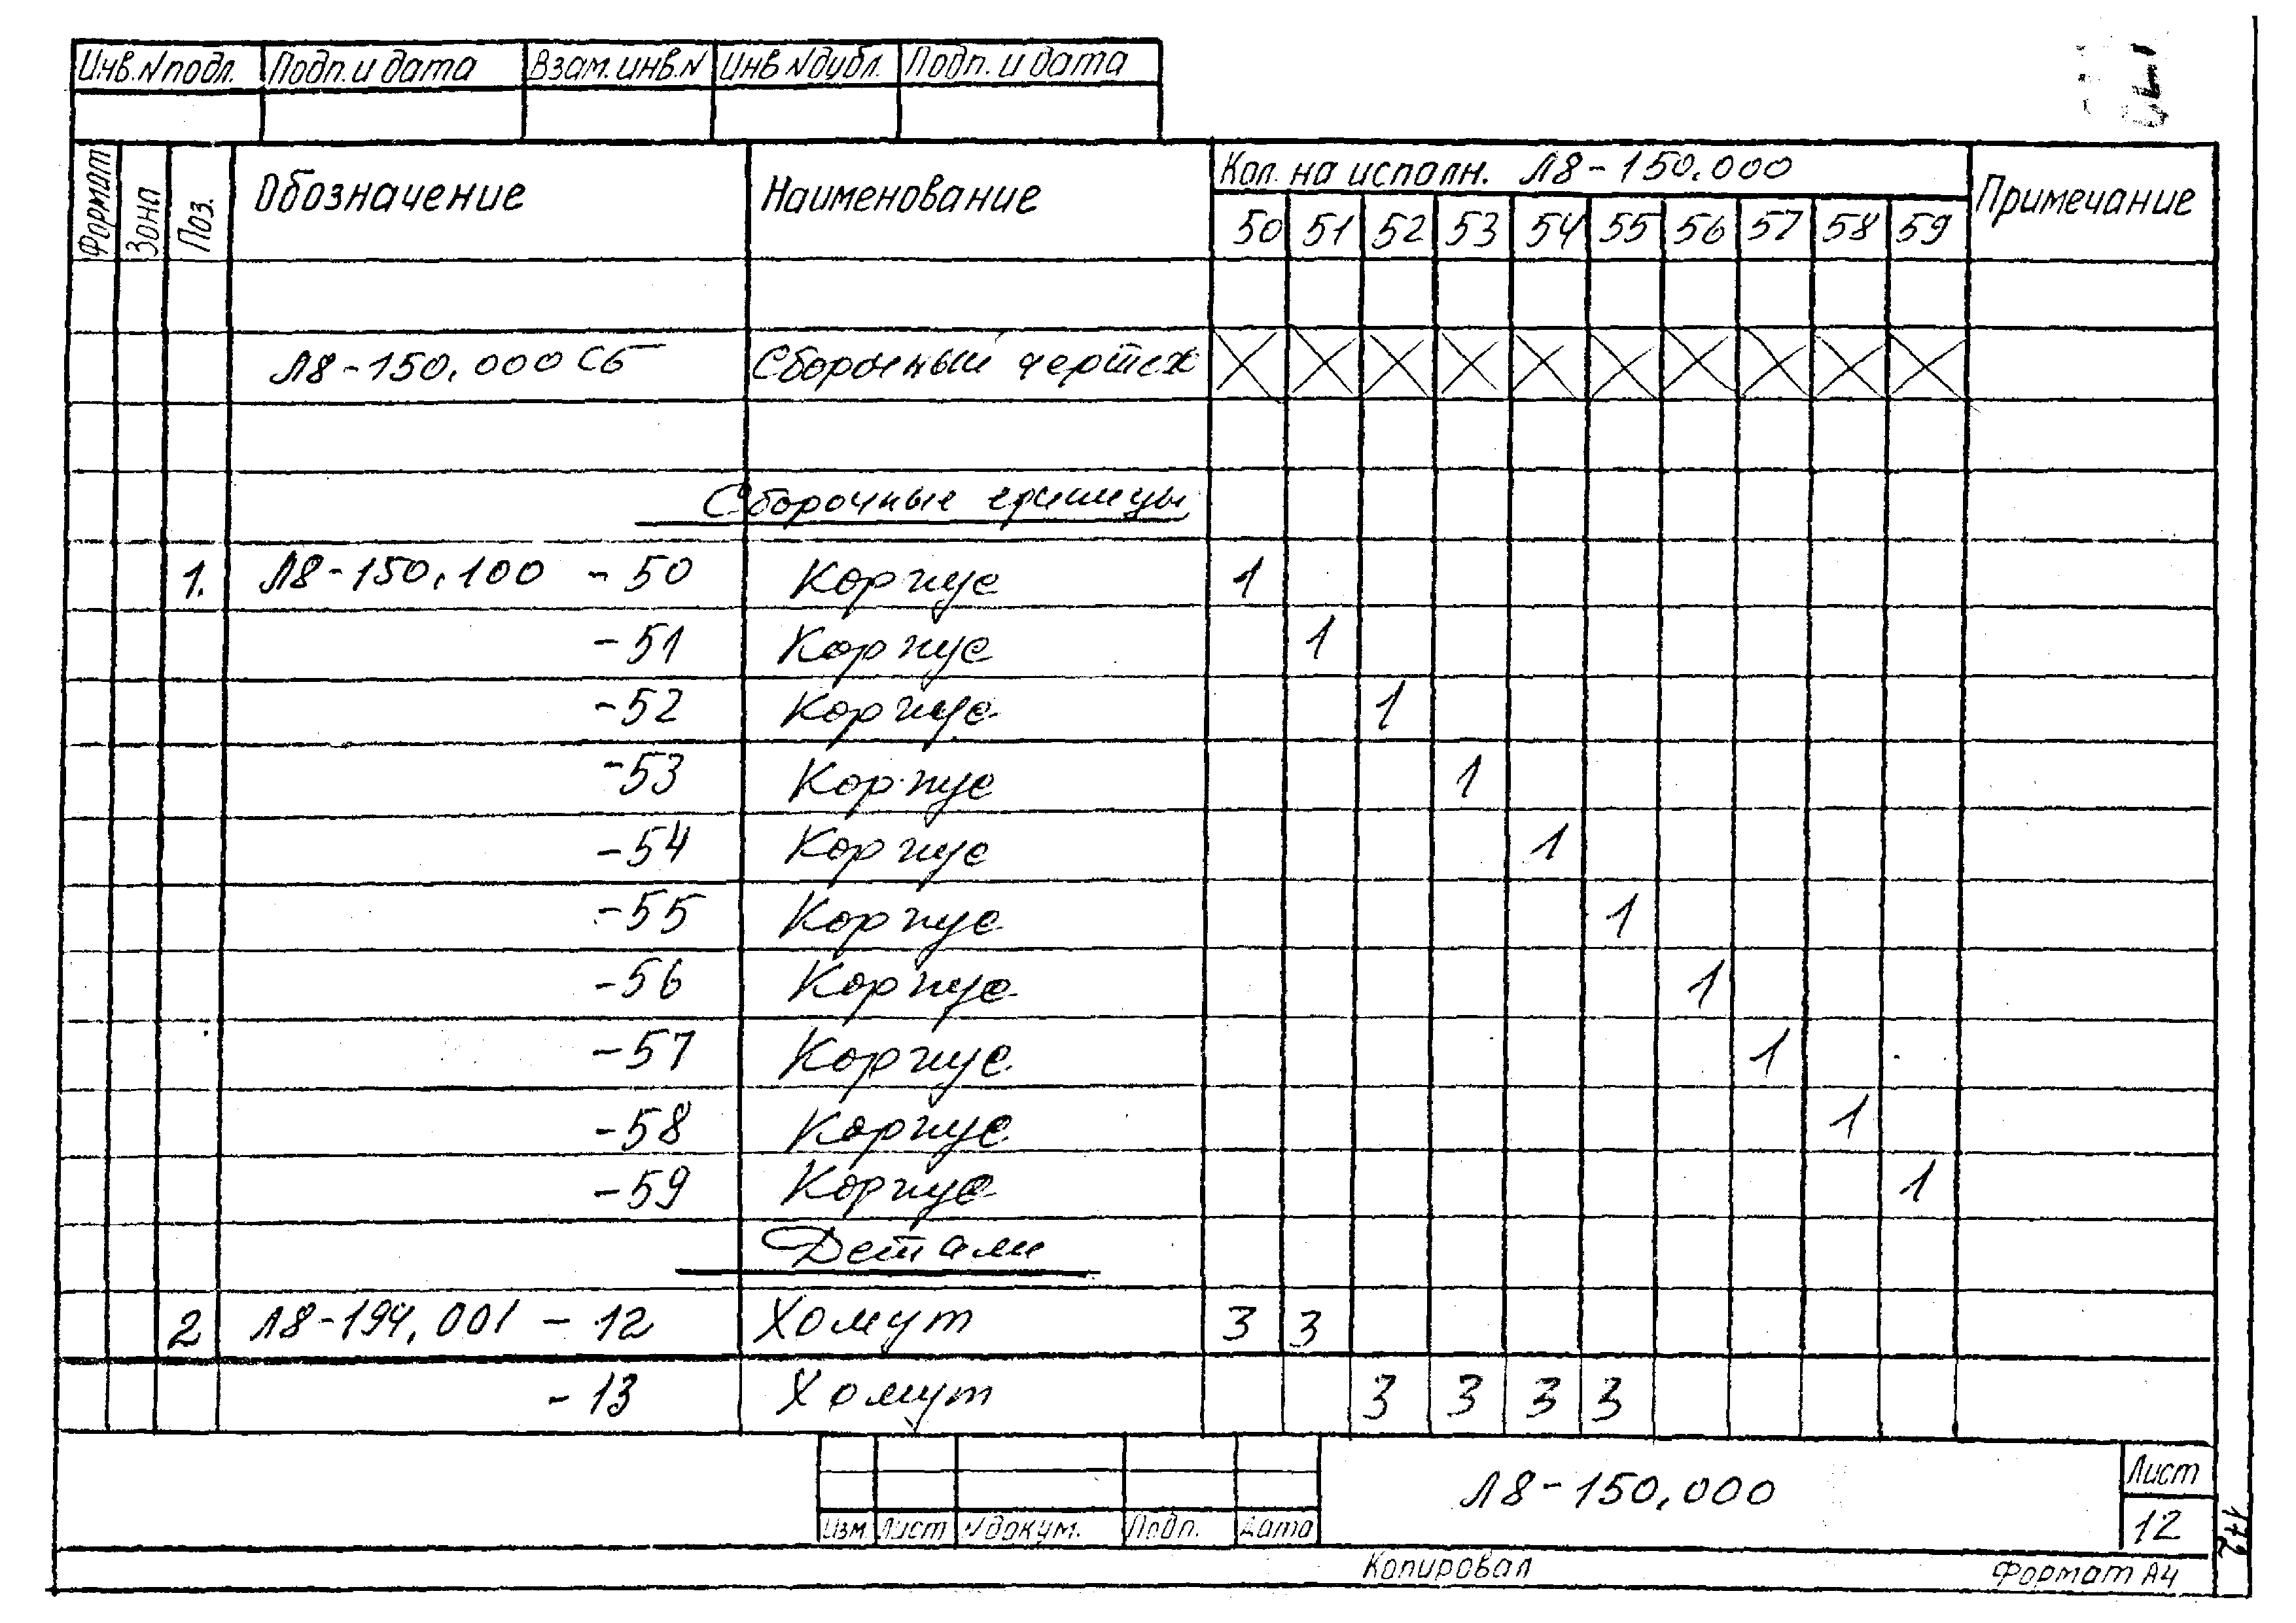 Инв.№подл. Подп. и дата Взам. инв.№ Инв №дубл. Подп. и дата
Формат Зона Поз. Обозначение Наименование Кол. на исполн. Л8-150.000 Примечание
50 51 52 53 54 55 56 57 58 59
Л8-150.000 СБ Сборочный чертеж
Сборочные единицы
1. Л8-150.100 -50 Корпус 1
-51 Корпус 1
-52 Корпус 1
-53 Корпус 1
-54 Корпус 1
-55 Корпус 1
-56 Корпус 1
-57 Корпус 1
-58 Корпус 1
-59 Корпус 1
Детали
2 Л8-194.001 -12 Хомут 3 3
-13 Хомут 3 3 3 3
Л8-150.000
Лист
12
Изм Лист №докум. Подп. Дата
Копировал
Формат А4
172